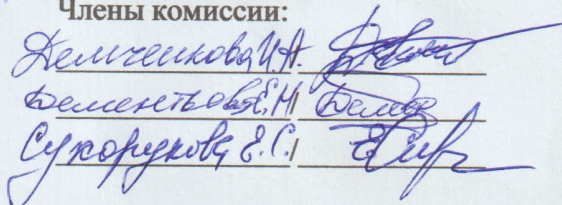 Члены комиссии:
Демченкова И.А. /
Дементьева Е.М. /
Сухорукова Е.С. /